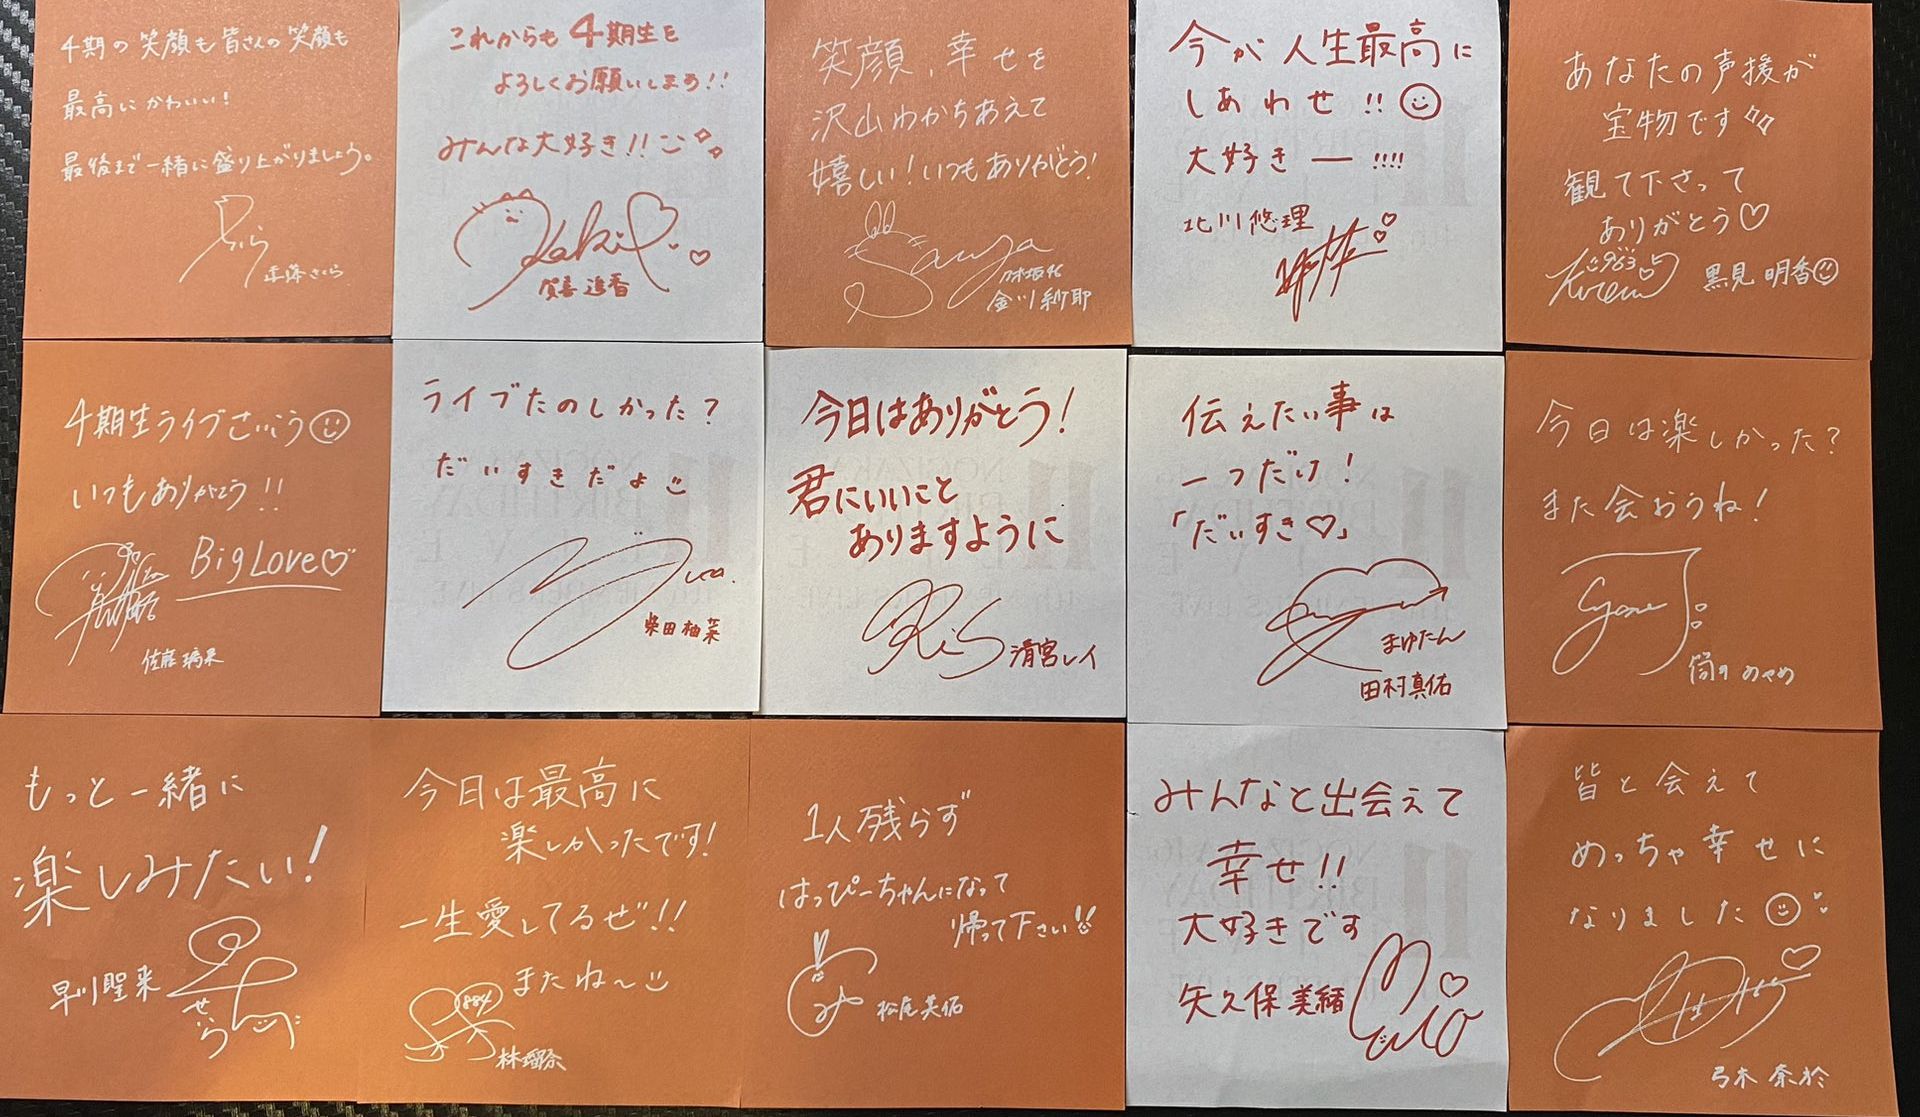 4期の笑顔も皆さんの笑顔も
最高にかわいい!
最後まで一緒に盛り上がりましょう。
さくら
遠藤さくら
これからも4期生を
よろしくお願いします!!
みんな大好き!!
Kaki
賀喜遥香
笑顔、幸せを
沢山わかちあえて
嬉しい!いつもありがとう!
Saya
乃木坂46
金川紗耶
今が人生最高に
しあわせ!!
大好きー!!!!
北川悠理
あなたの声援が
宝物です
観て下さって
ありがとう♡
963
黒見明香
4期生ライブさいこう
いつもありがとう!!
Big Love♡
佐藤璃果
ライブたのしかった?
だいすきだよ
柴田柚菜
今日はありがとう!
君にいいこと
ありますように
清宮レイ
伝えたい事は
一つだけ!
「だいすき♡」
まゆたん
田村真佑
今日は楽しかった?
また会おうね!
筒井あやめ
もっと一緒に
楽しみたい!
早川聖来
せら
今日は最高に
楽しかったです!
一生愛してるぜ!!
またね~
884
林瑠奈
1人残らず
はっぴーちゃんになって
帰って下さい!!
松尾美佑
みんなと出会えて
幸せ!!
大好きです
矢久保美緒
Mio
皆と会えて
めっちゃ幸せに
なりました
弓木奈於